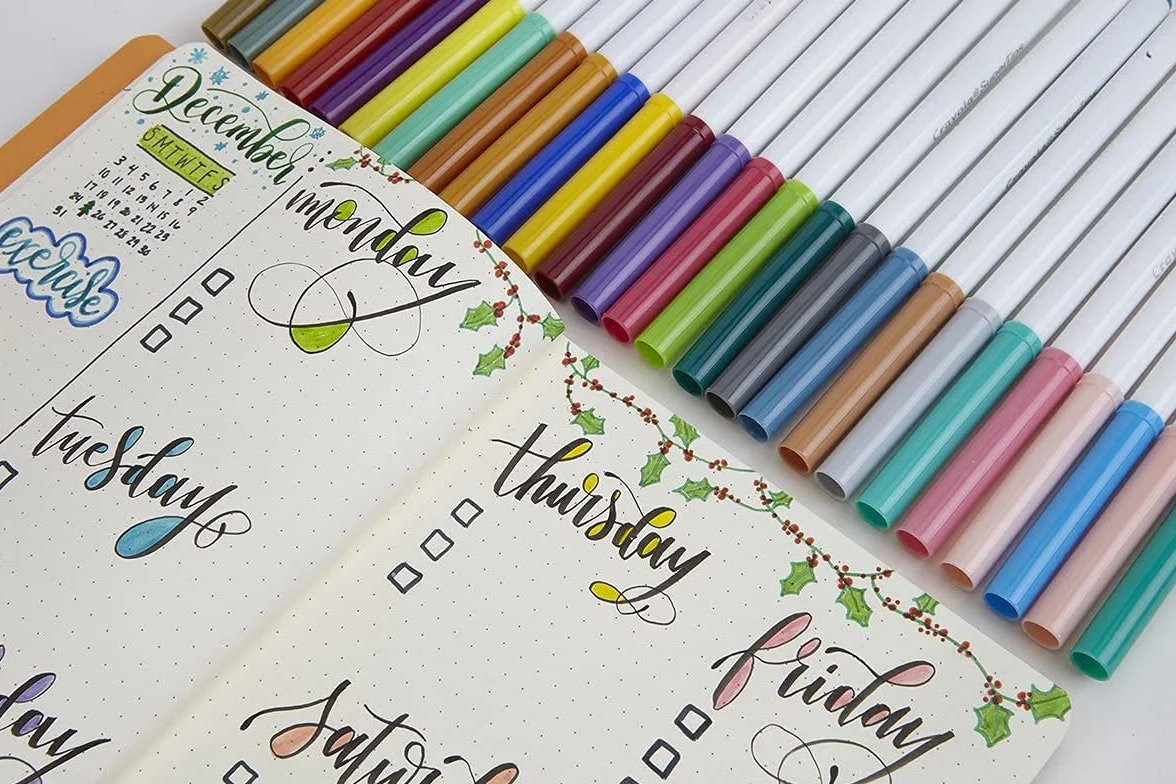 December
S M T W T F S
1 2
3 4 5 6 7 8 9
10 11 12 13 14 15 16
17 18 19 20 21 22 23
24 26 27 28 29 30
31
exercise
monday
tuesday
day
thursday
friday
Satur
Crayola SuperTips